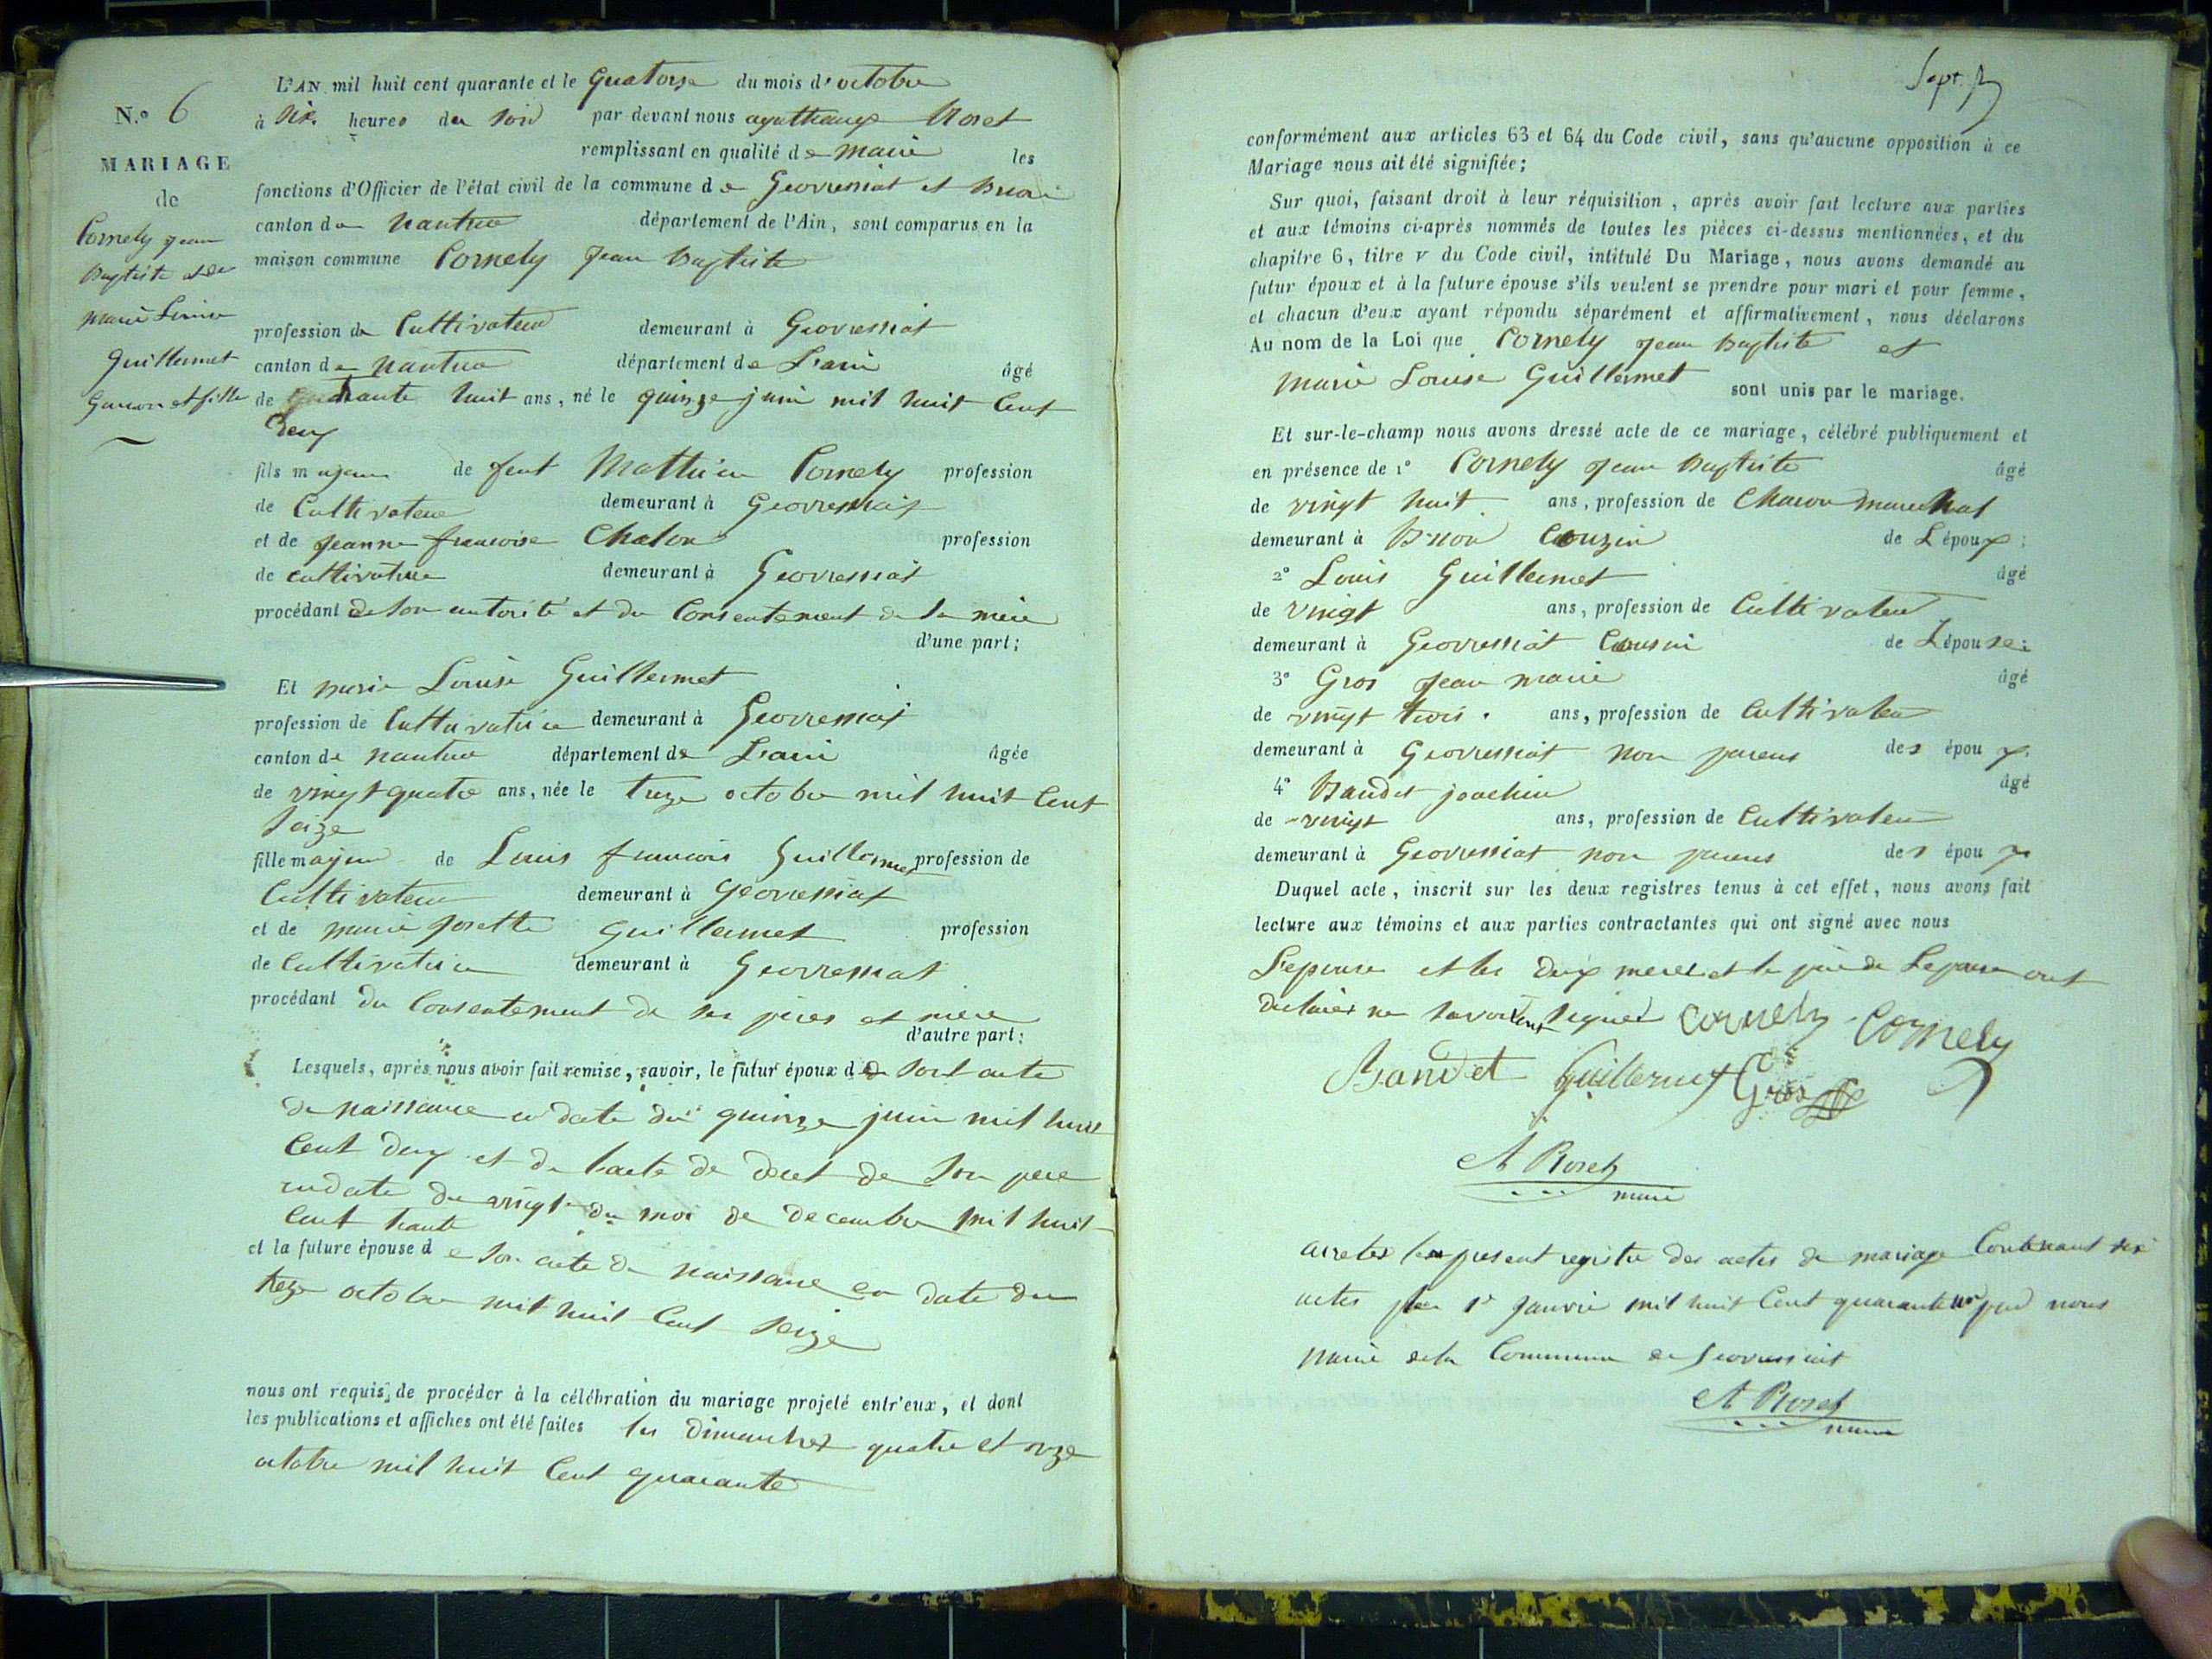 N.° 6
MARIAGE
de
Cornely jean
Baptiste et de
marie Louise
Guillermet
Garcon et fille
L'AN mil huit cent quarante et le Quatorze du mois d'octobre
à Six heures du Soir par-devant nous agathange Roset
remplissant en qualité de maire les
fonctions d'Officier de l'état civil de la commune de Geovressiat et Brion
canton de nantua département de l'Ain, sont comparus en la
maison commune Cornely Jean Baptiste
profession de Cultivateur demeurant à Geovressiat
canton de nantua département de L'ain âgé
de trante huit ans, né le quinze juin mil huit Cent
Deux
fils majeur de feut Mathieu Cornely profession
de Cultivateur demeurant à Geovressiat
et de jeanne francoise Chalon profession
de cultivatrice demeurant à Geovressiat
procédant de son autorité et du Consentement de Sa mère
d'une part;
Et marie Louise Guillermet
profession de Cultivatrice demeurant à Geovressiat
canton de nantua département de L'ain âgée
de vingt quatre ans, née le treze octobre mil huit Cent
Seize
fille majeur de Louis francois Guillermet profession de
Cultivateur demeurant à Geovressiat
et de marie josette Guillermet profession
de Cultivatrice demeurant à Geovressiat
procédant du Consentement de ses pères et mère
d'autre part;
Lesquels, après nous avoir fait remise, savoir, le futur époux de Sont acte
de naissance en date du quinze juin mil huit
Cent deux et de l'acte de décet de Son pere
en date du vingt du moi de decembre mil huit
Cent trante
et la future épouse de Son acte de naissance en date du
treze octobre mil huit Cent Seize
nous ont requis, de procéder à la célébration du mariage projeté entr'eux, et dont
les publications et affiches ont été faites les dimanches quatre et onze
octobre mil huit Cent quarante
Sept.
conformément aux articles 63 et 64 du Code civil, sans qu'aucune opposition à ce
Mariage nous ait été signifiée;
Sur quoi, faisant droit à leur réquisition, après avoir fait lecture aux parties
et aux témoins ci-après nommés de toutes les pièces ci-dessus mentionnées, et du
chapitre 6, titre v du Code civil, intitulé Du Mariage, nous avons demandé au
futur époux et à la future épouse s'ils veulent se prendre pour mari et pour femme,
et chacun d'eux ayant répondu séparément et affirmativement, nous déclarons
Au nom de la Loi que Cornely jean Baptiste et
marie Louise Guillermet sont unis par le mariage.
Et sur-le-champ nous avons dressé acte de ce mariage, célébré publiquement et
en présence de 1° Cornely jean Baptiste âgé
de vingt huit ans, profession de Charon marechal
demeurant à Brion Couzin de L'époux;
2° Louis Guillermet âgé
de vingt ans, profession de Cultivateur
demeurant à Geovressiat Cousin de L'épouse;
3° Gros jean marie âgé
de vingt trois. ans, profession de Cultivateur
demeurant à Geovressiat non parens des époux.
4° Baudet joachim âgé
de vingt ans, profession de Cultivateur
demeurant à Geovressiat non parens des époux
Duquel acte, inscrit sur les deux registres tenus à cet effet, nous avons fait
lecture aux témoins et aux parties contractantes qui ont signé avec nous
L'epouse et les deux meres et le père de Lepouse ont
declarés ne Savoir signer Cornely Cornely
Baudet Guillermet Gros
A Roset
maire
arretes le present registre des actes de mariage Contenant six
actes le 1er Janvié mil huit Cent quarante un par nous
maire de la Commune de Geovressiat
A Roset
maire